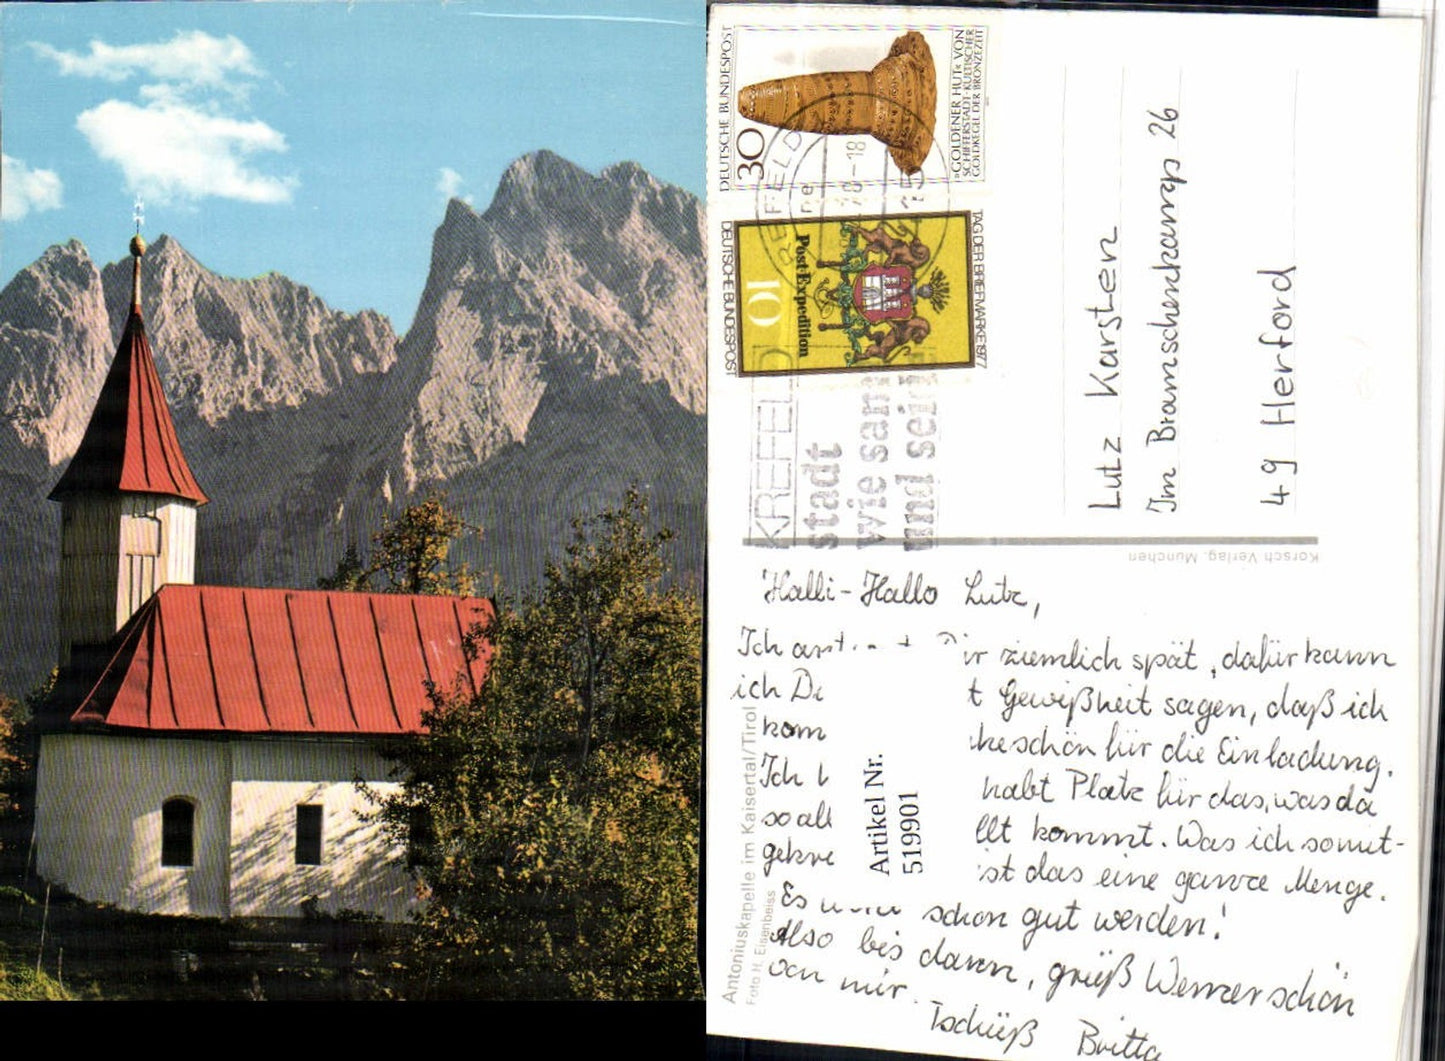 DEUTSCHE BUNDESPOST
30
»GOLDENER HUT« VON
SCHIFFERSTADT-KULTISCHER
GOLDKEGEL DER BRONZEZEIT
TAG DER BRIEFMARKE 1977
Post-Expedition
10
DEUTSCHE BUNDESPOST
KREFELD
stadt
wie sam
und sei
Lutz Karsten
Im Bramschenkamp 26
49 Herford
Korsch Verlag, München
Halli-Hallo Lutz,
Ich ziemlich spät, dafür kann
ich Gewißheit sagen, daß ich
kom keschön für die Einladung.
Ich habt Platz für das, was da
so all kommt. Was ich somit-
gekre ist das eine ganze Menge.
Es schon gut werden!
Also bis dann, grüß Werner schön
von mir.
Tschüß Britta
Artikel Nr.
519901
Antoniuskapelle im Kaisertal/Tirol
Foto H. Eisenbeiss